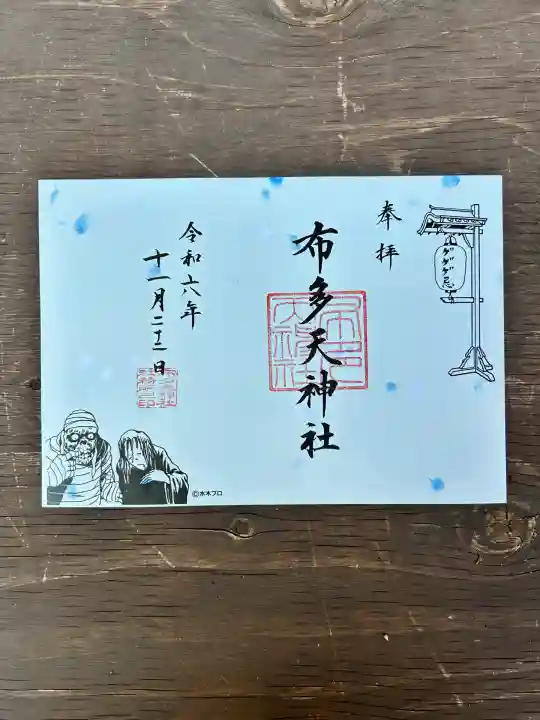 奉拝
ゲゲゲ忌
布多天神社
令和六年
十一月二十二日
©水木プロ